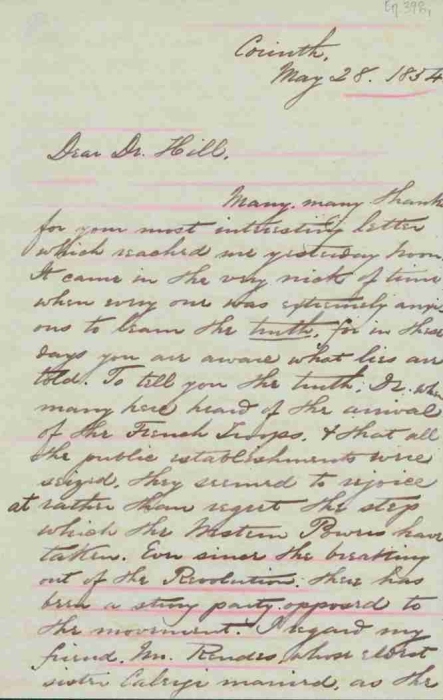 Corinth,
May 28. 1854
Dear Dr. Hill,
Many, many thanks
for your most interesting letter
which reached me yesterday noon.
It came in the very nick of time
when every one was extremely anxi-
ous to learn the truth, for in these
days you are aware what lies are
told. To tell you the truth, Dr. when
many here heard of the arrival
of the French Troops, & that all
the public establishments were
seized, they seemed to rejoice
at rather than regret the step
which the Western Powers have
taken. Ever since the breaking
out of the Revolution, there has
been a strong party opposed to
the movement. I regard my
friend, Mr. whose eldest
sister married, as the